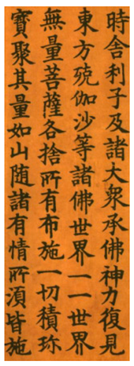 時舎利子及諸大衆承佛神力復見
東方殑伽沙等諸佛世界一一世界
無量菩薩各捨所有布施一切積珎
寶聚其量如山随諸有情所湏皆施